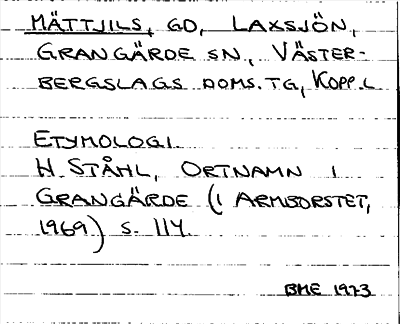 MÄTTJILS, GD, LAXSJÖN,
GRANGÄRDE SN, VÄSTER-
BERGSLAGS DOMS.TG, KOPP.L
ETYMOLOGI.
H STÅHL, ORTNAMN I
GRANGÄRDE (I ARMBORSTET,
1969) S. 114.
BME 1973